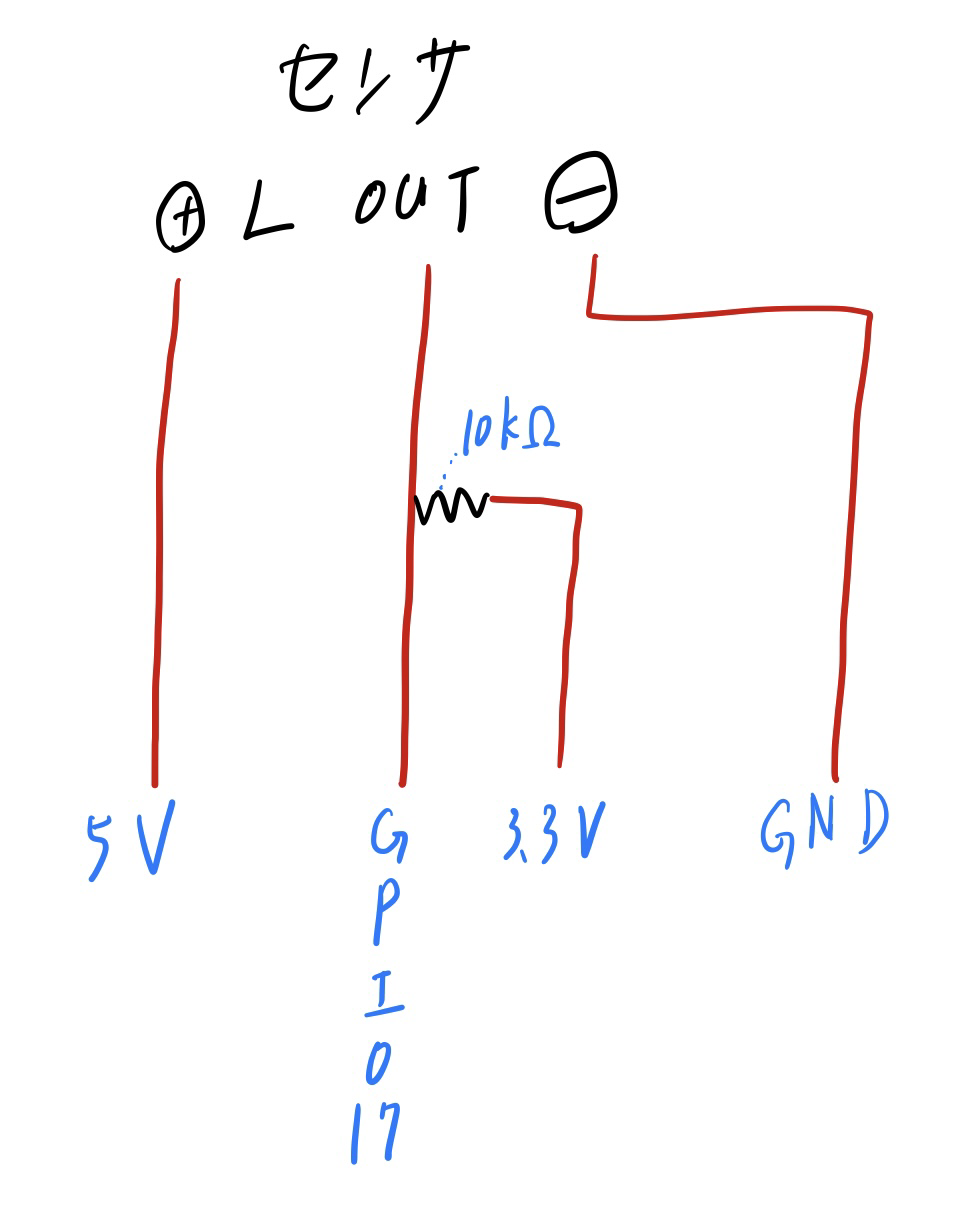 センサ
⊕ L OUT ⊖
10kΩ
5V
GPIO17
3.3V
GND